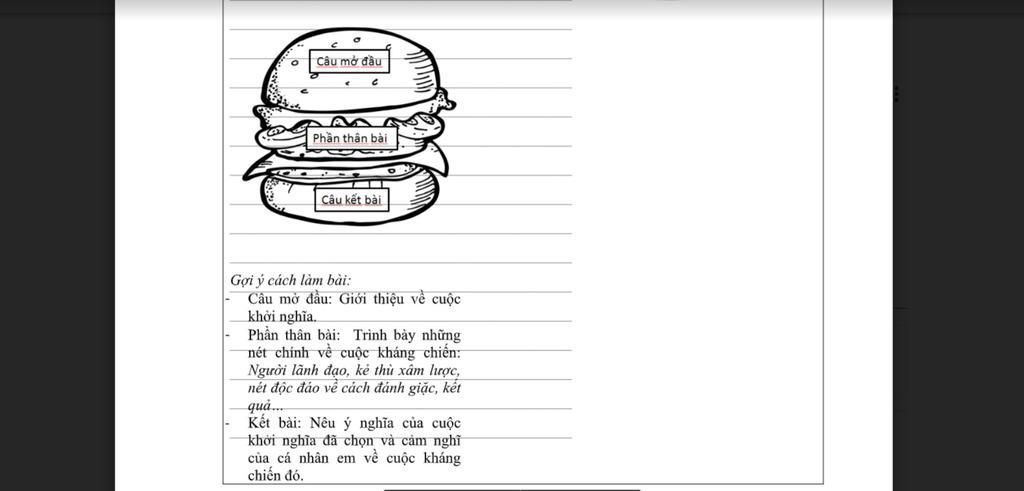 Câu mở đầu
Phần thân bài
Câu kết bài
Gợi ý cách làm bài:
- Câu mở đầu: Giới thiệu về cuộc
khởi nghĩa.
- Phần thân bài: Trình bày những
nét chính về cuộc kháng chiến:
Người lãnh đạo, kẻ thù xâm lược,
nét độc đáo về cách đánh giặc, kết
quả...
- Kết bài: Nêu ý nghĩa của cuộc
khởi nghĩa đã chọn và cảm nghĩ
của cá nhân em về cuộc kháng
chiến đó.